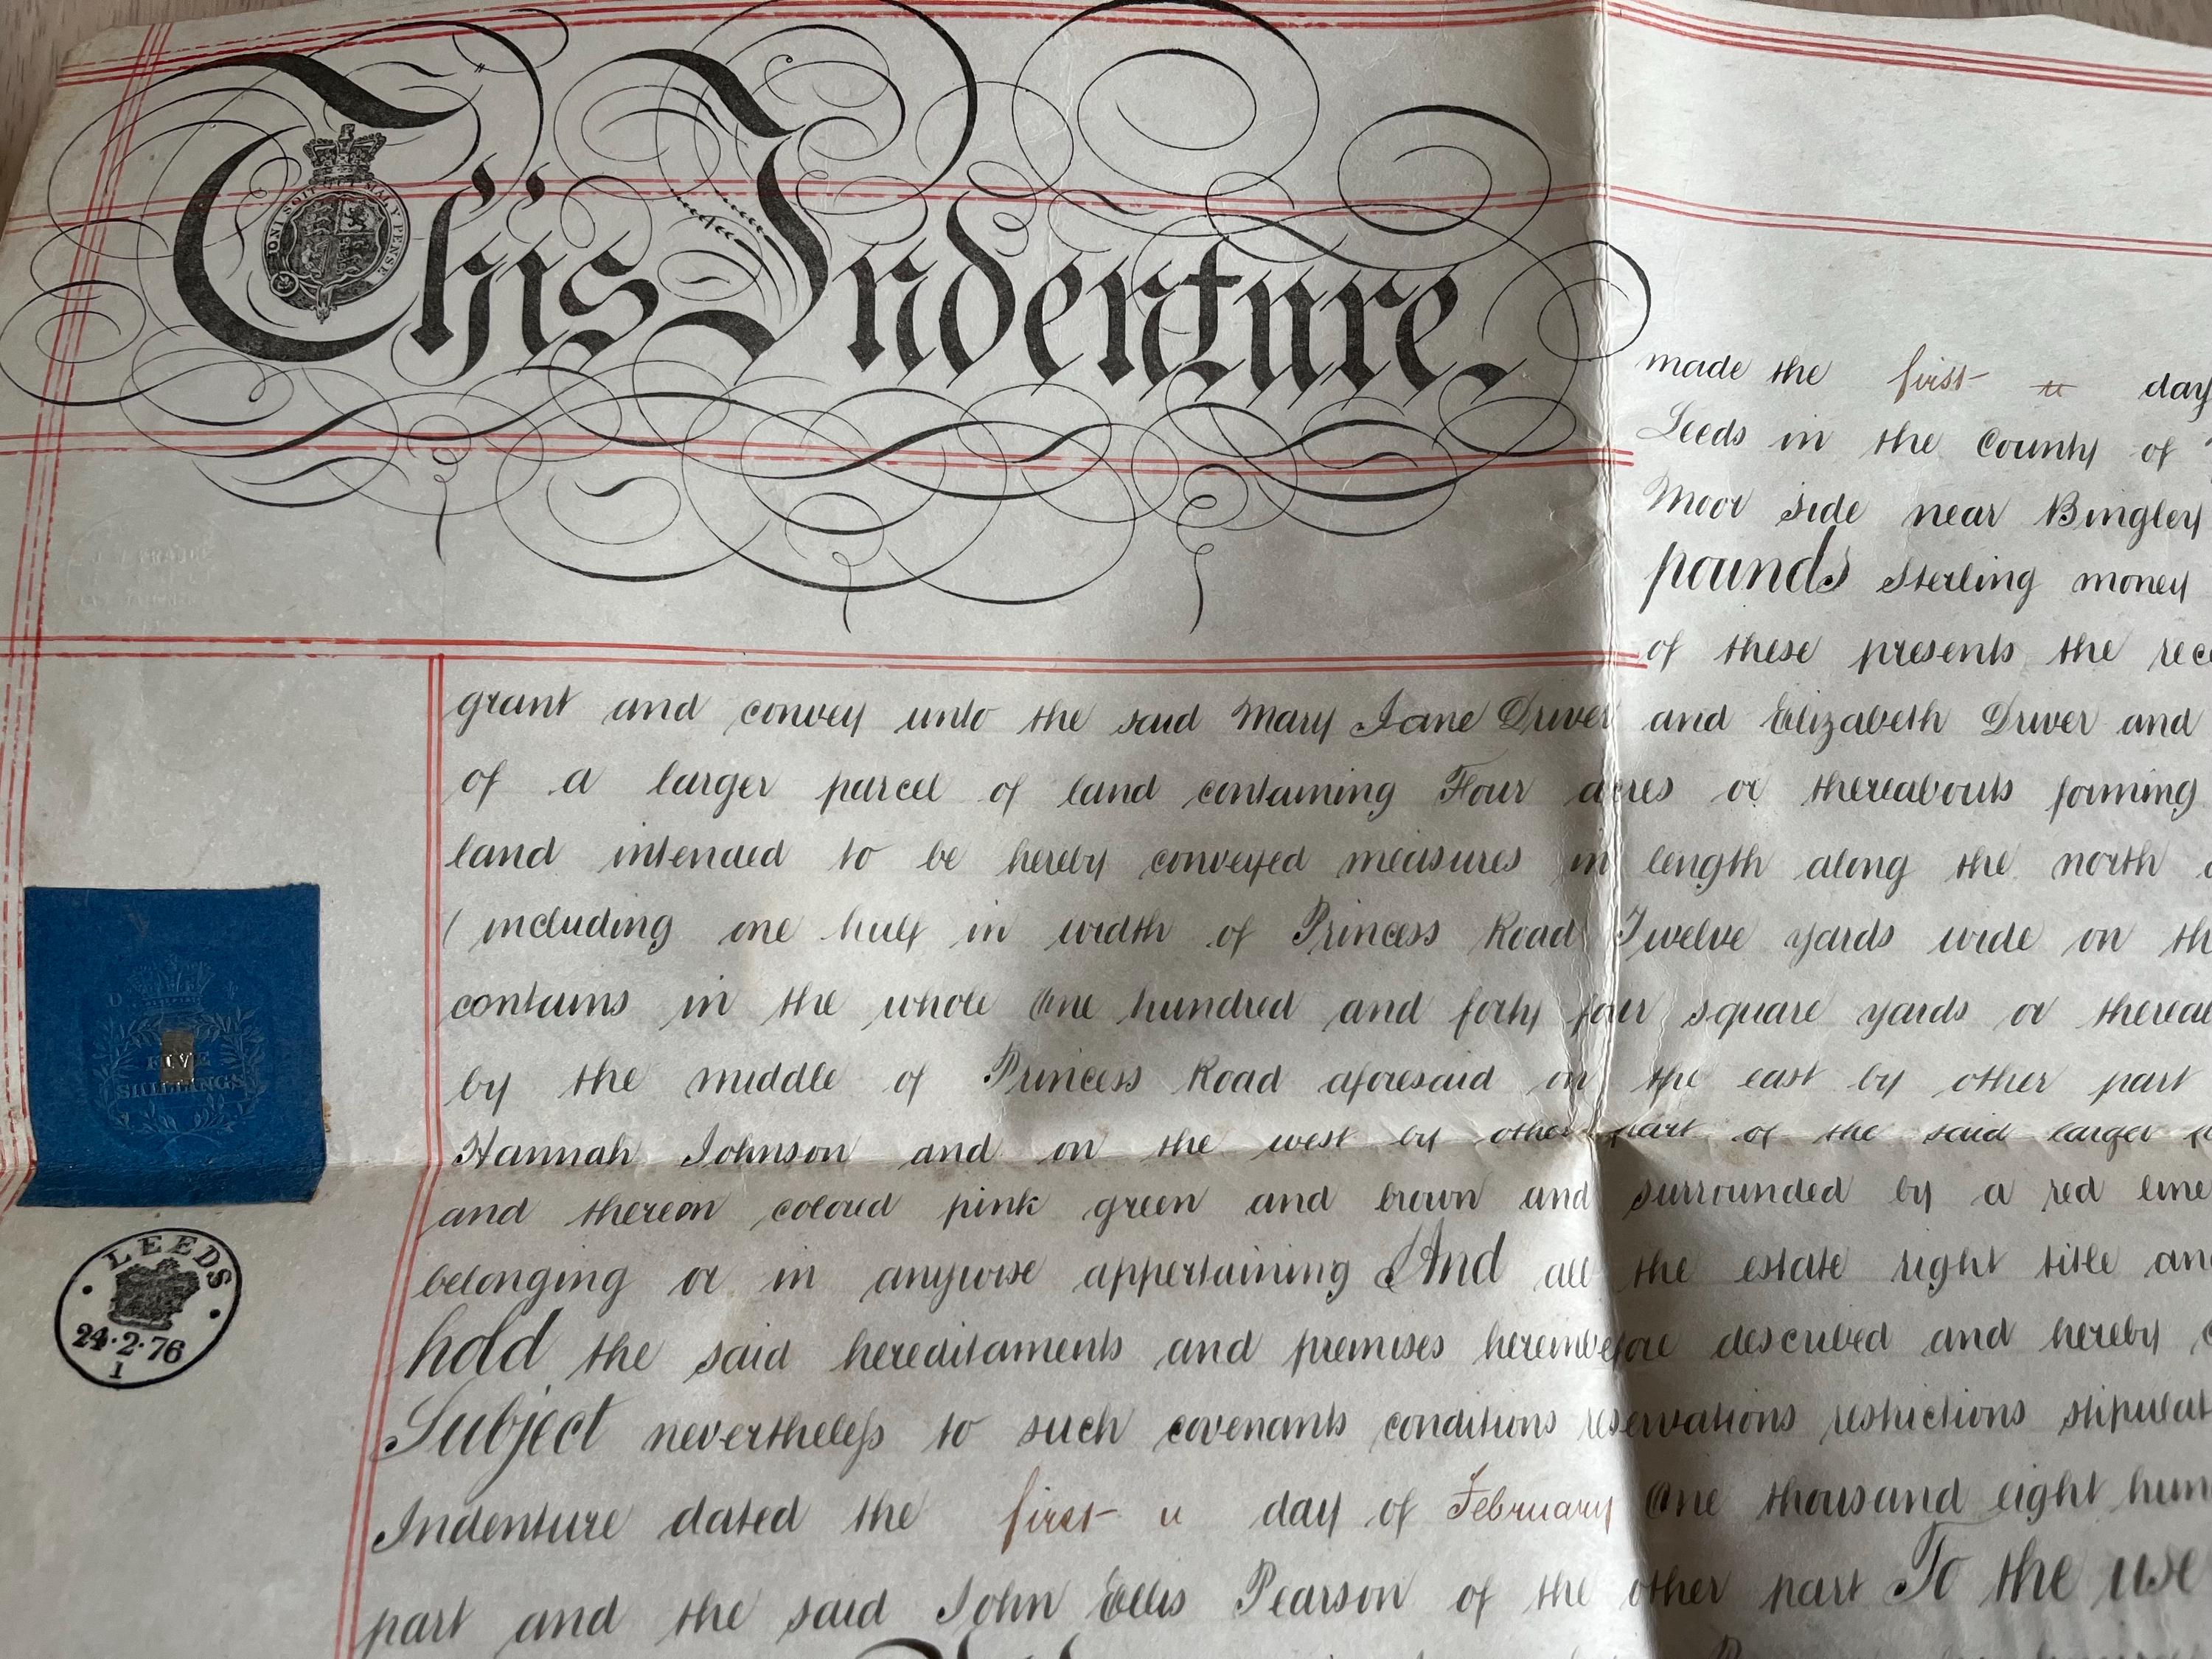 This Indenture
HONI SOIT QUI MAL Y PENSE
made the first day
Leeds in the County of
Moor side near Bingley
pounds Sterling money
of these presents the rece
grant and convey unto the said Mary Jane Driver and Elizabeth Driver and
of a larger parcel of land containing Four acres or thereabouts forming
land intended to be hereby conveyed measures in length along the north
(including one half in width of Princess Road Twelve yards wide on th
contains in the whole One hundred and forty four square yards or thereab
by the middle of Princess Road aforesaid on the east by other part
Hannah Johnson and on the west by other part of the said larger p
and thereon colored pink green and brown and surrounded by a red line
belonging or in anywise appertaining And all the estate right title and
hold the said hereditaments and premises hereinbefore described and hereby
Subject nevertheless to such covenants conditions reservations restrictions stipulat
Indenture dated the first day of February One thousand eight hun
part and the said John Ellis Pearson of the other part To the use
FIVE
SHILLINGS
LEEDS
24·2·76
1